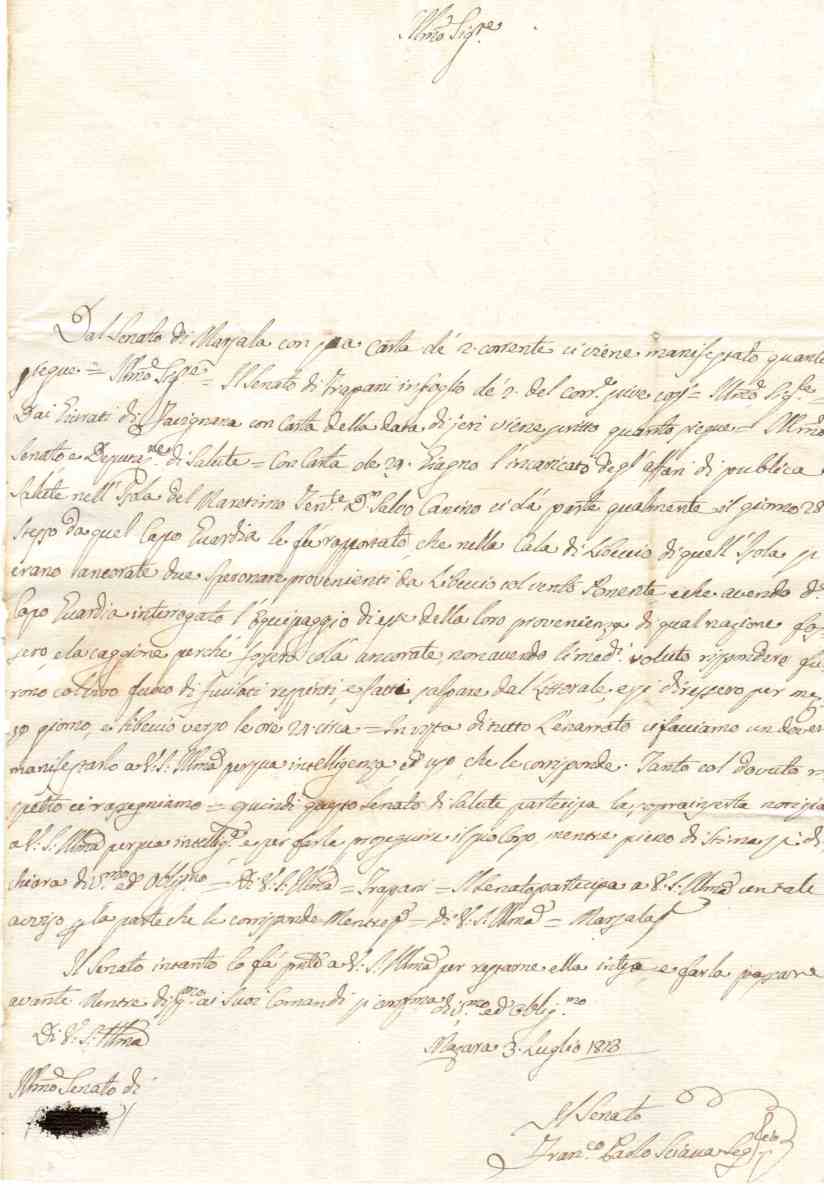 Illmo Sigre
Dal Senato di Marsala con sua Carta de' 2. corrente ci viene manifestato quanto
segue = Illmo Sigre = Il Senato di Trapani in foglio de' 2. del corre. scrive così = Illmo Sigre =
Dai Giurati di Favignana con Carta della data di jeri viene scritto quanto segue = Illmo
Senato e Deputane di Salute = Con Carta de 29. Giugno l'incaricato degl'affari di publica
Salute nell'Isola del Maretimo Tene. Dn Salvo Canino ci dà parte qualmente il giorno 28
stesso da quel Capo Guardia le fù rapportato, che nella Cala di Libeccio di quell'Isola si
erano ancorate due Speronare provenienti da Libeccio col vento Ponente, e che avendo do.
Capo Guardia interrogato l'Equipaggio di esse della loro provenienza, di qual nazione fos-
sero, e la caggione perchè fossero colà ancorate, non avendo li medi. voluto rispondere fu-
rono col vivo fuoco di fucilati respinti, e fatti salpare dal Littorale, e si diressero per mez-
zo giorno, e libeccio verso le ore 21. circa = In vista di tutto l'enarrato ci facciamo un dovere
manifestarlo a V. S. Illma per sua intelligenza ed uso, che le corrisponde. Tanto col dovuto ri-
spetto ci rassegniamo = quindi questo Senato di Salute partecipa la sopra inserta notizia
a V. S. Illma per sua intellige. e per farla proseguire il suo Corso, mentre pieno di stima si di-
chiara divmo ed Obligmo = Di V. S. Illma = Trapani = Il Senato partecipa a V. S. Illma un tale
avviso per la parte che le corrisponde Mentre = di V. S. Illma = Marsala
Il Senato intanto lo fà pnte a V. S. Illma per restarne ella intesa, e farla passare
avante Mentre ai Suoi Comandi si conferma divmo ed Obligmo
Di V. S. Illma
Mazara 3. Luglio 1813
Illmo Senato di
Il Senato
Franco Paolo Sciava Segrio